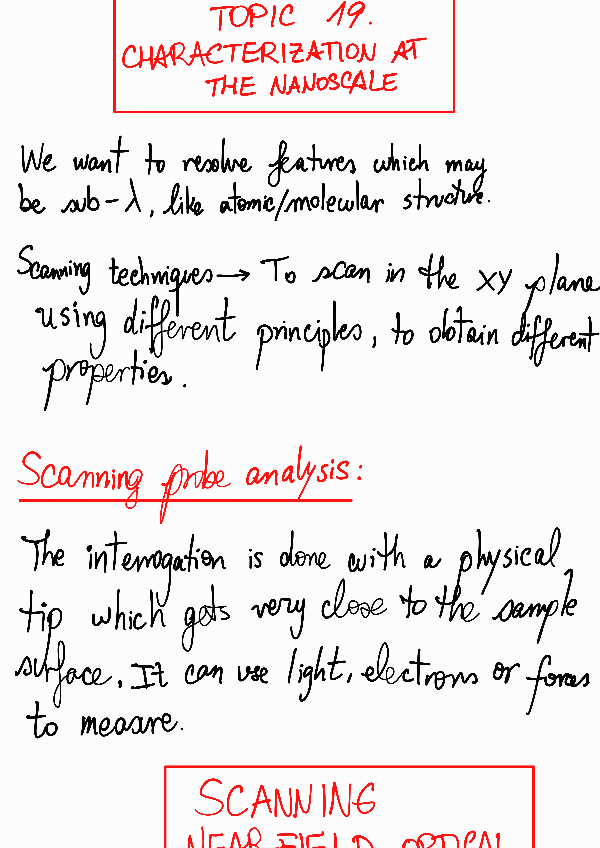 TOPIC 19.
CHARACTERIZATION AT
THE NANOSCALE
We want to resolve features which may
be sub-λ, like atomic/molecular structure.
Scanning techniques → To scan in the XY plane
using different principles, to obtain different
properties.
Scanning probe analysis:
The interrogation is done with a physical
tip which gets very close to the sample
surface. It can use light, electrons or forces
to measure.
SCANNING
NEAR FIELD OPTICAL